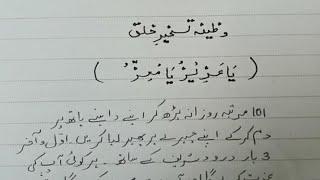 وظیفہ تسخیرِ خلق
( یَا عَزِیْزُ یَا مُعِزُّ )
101 مرتبہ روزانہ پڑھ کر اپنے داہنے ہاتھ پر
دم کر کے اپنے چہرے پر پھیر لیا کریں۔ اوّل و آخر
3 بار درود شریف کے ساتھ۔ ہر کوئی آپ کی